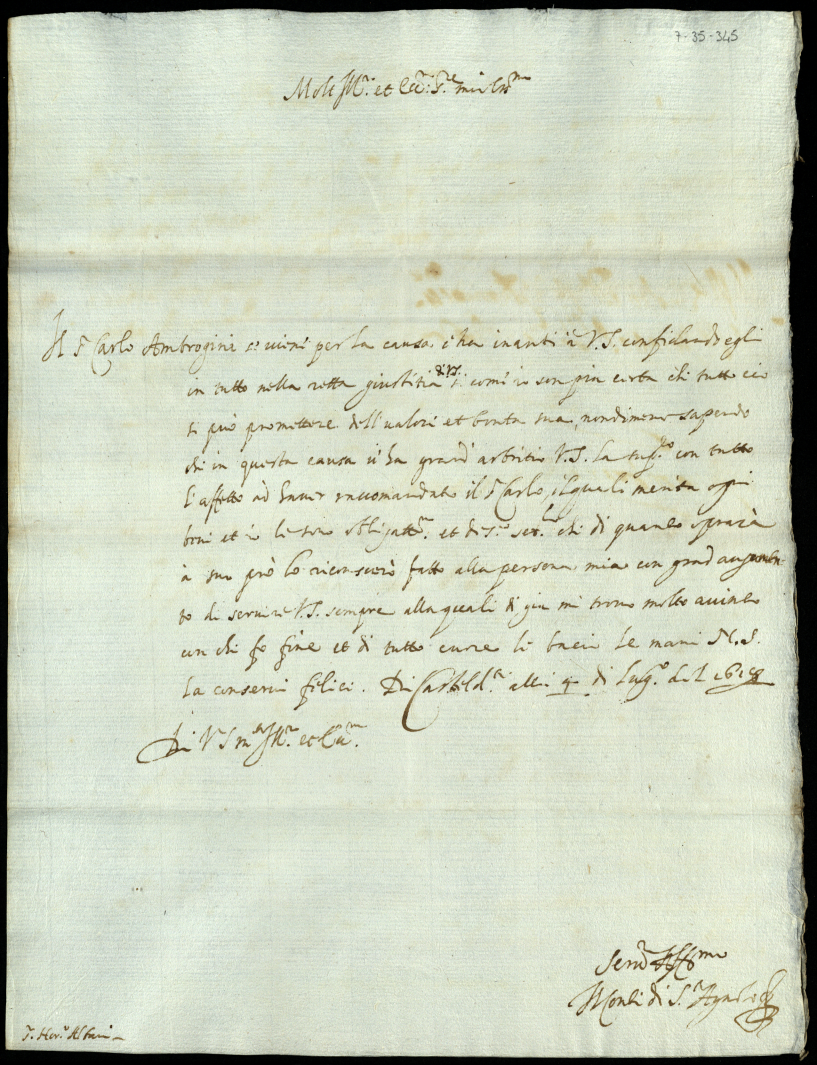 7-35-345
Molt Ill.re et Ecc.te S.re mio
Il S.r Carlo Ambrogini se vieni per la causa c'ha inanti à V.S. confidando egli
in tutto nella retta giustitia di V.S. comi io son piu certa chi tutto cio
si può promettere dell valori et bonta sua, nondimeno sapendo
chi in questa causa vi ha grand' arbitrio V.S. la con tutto
l'affetto ad haver raccomandato il S.r Carlo, il quali merita ogni
beni et io le sarò obligatt.mo et di chi di quanto oprarà
à suo prò lo riconscerò fatto alla persona mia con grand augumen
to di servire V.S. sempre alla quali di gia mi trovo molto avinto
con chi fo fine et di tutto cuore li bacio le mani N.S.
la conservi felici. Di Casteld.te alli 4 di Lug.o del 1618
Di V.S. m.to Ill.re et Ecc.ma
Ser.re Aff.mo
Il Conti di S.
S. Hor.o Albani